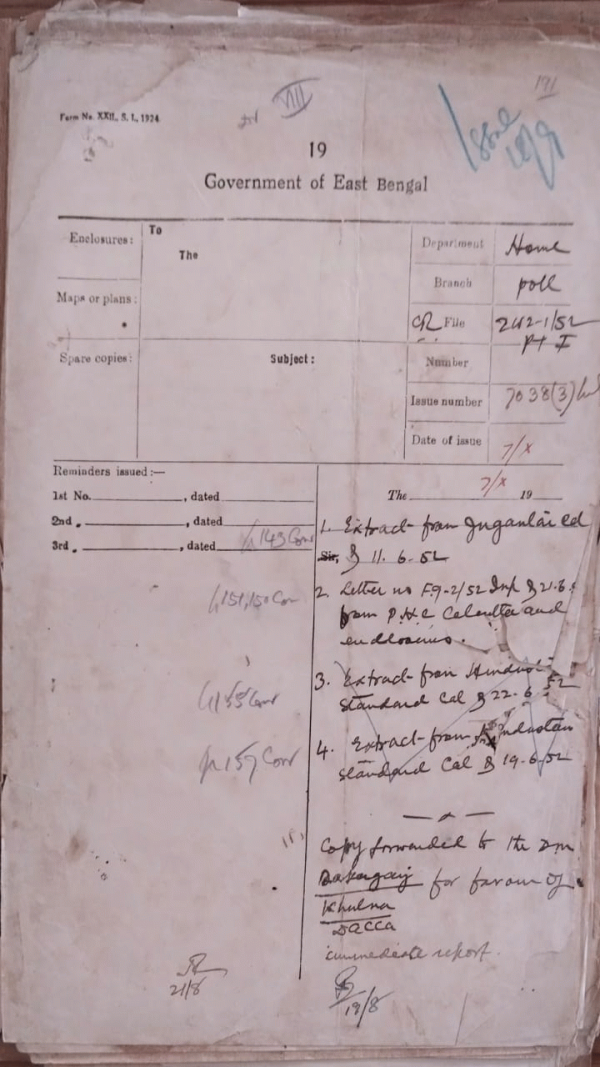 191
VIII
Form No. XXII, S. I., 1924
Issue
18/9
19
Government of East Bengal
Enclosures:
To
The
Department
Home
Branch
poll
Maps or plans:
CR File
2W2-1/52
Pt I
Spare copies:
Subject:
Number
Issue number
7038(3)
Date of issue
7/x
Reminders issued:—
1st No. , dated
The 7/x 19
2nd „ , dated
3rd „ , dated
p 143 Corr
1. Extract from Jugantar Cal
Sir, D 11. 6. 52
p 151, 150 Cor
2. Letter no F. 9-2/52 Inf D 21.6.
from P.H.C Calcutta and
enclosures.
3. Extract from Hindust
Standard Cal D 22-6-52
p 155 Corr
4. Extract from Hindustan
Standard Cal D 19.6.52
p 157 Corr
Copy forwarded to the Dm
Bakarganj for favour of
Khulna
Dacca
immediate report.
21/8
19/8